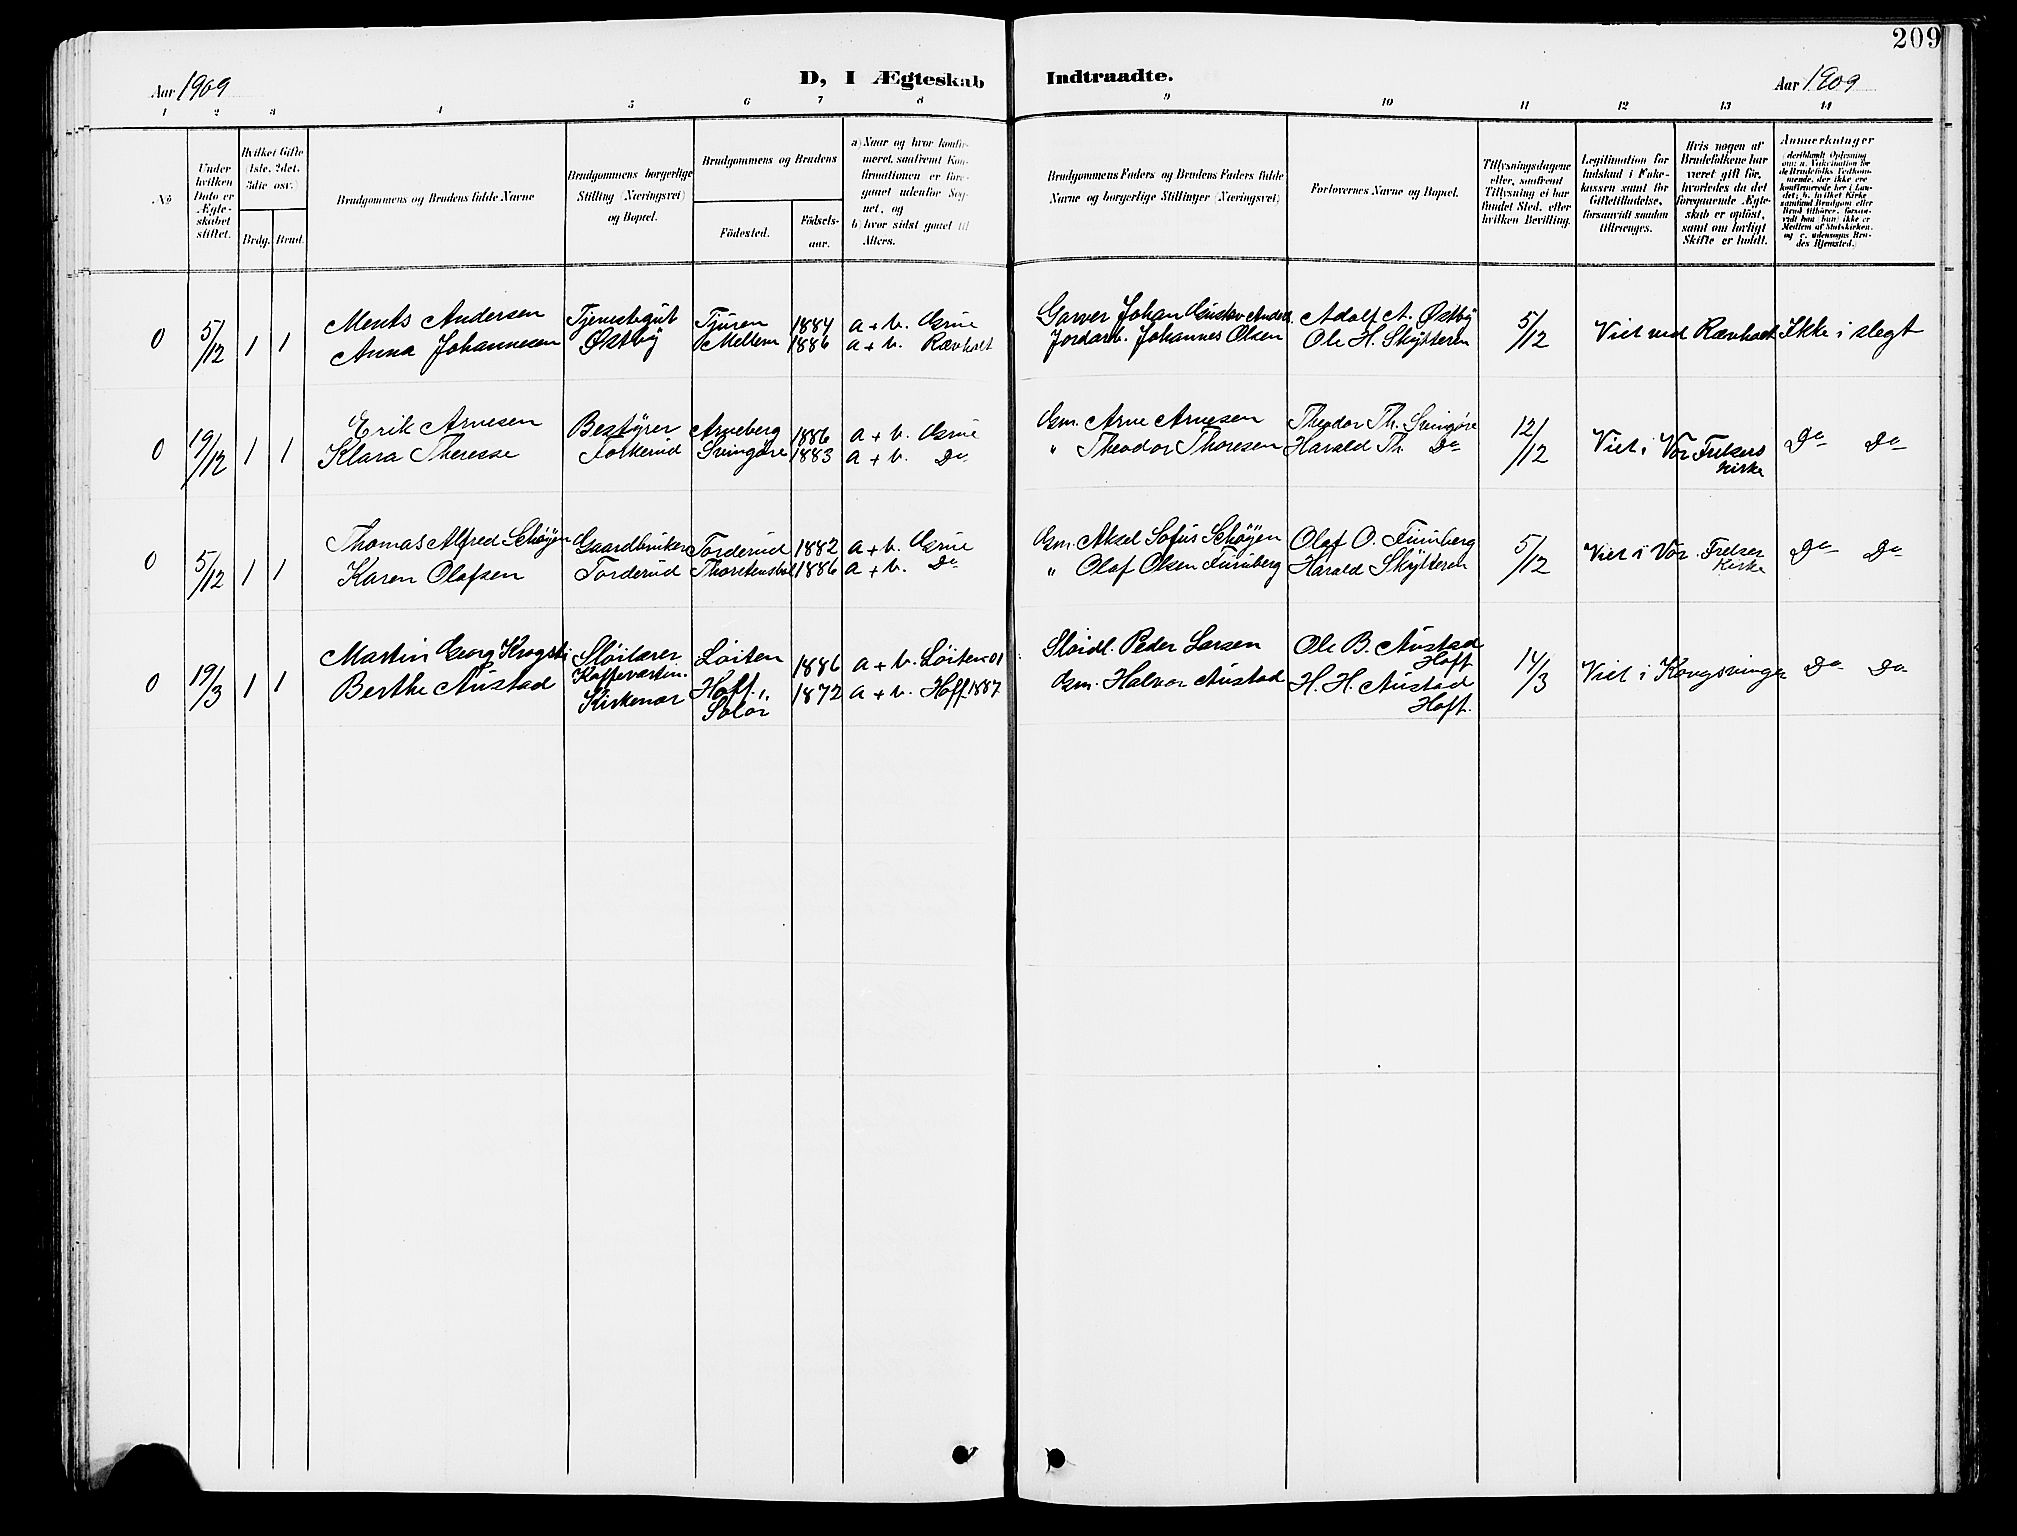 209
D, I Ægteskab Indtraadte.
Aar 1909
Aar 1909
1 2 3 4 5 6 7 8 9 10 11 12 13 14
No
Under hvilken Dato er Ægteskabet stiftet.
Hvilket Gifte (1ste, 2det, 3die osv.)
Brdg. Brud.
Brudgommens og Brudens fulde Navne
Brudgommens borgerlige Stilling (Næringsvei) og Bopæl.
Brudgommens og Brudens
Födested.
Födselsaar.
a) Naar og hvor konfirmeret, saafremt Konfirmationen er foregaaet udenfor Sognet, og
b) hvor sidst gaaet til Alters.
Brudgommens Faders og Brudens Faders fulde Navne og borgerlige Stillinger (Næringsvei)
Forlovernes Navne og Bopæl.
Tillysningsdagene eller, saafremt Tillysning ei har fundet Sted, efter hvilken Bevilling.
Legitimation for Indskud i Enkekassen samt for Giftetilladelse, forsaavidt saadan tiltrænges.
Hvis nogen af Brudefolkene har været gift för, hvorledes da det foregaaende Ægteskab er oplöst, samt om lovligt Skifte er holdt.
Anmerkninger
0 5/12 1 1 Ments Andersen Tjenestegut Tjuren 1884 a + b. Grue Garver Johan Gustav Anders. Adolf A. Østby 5/12 Viet ved Rævholt Ikke i slegt
Anna Johannesen Østby Mellem 1886 a + b. Rævholt Jordarb. Johannes Olsen Ole H. Skytteren
0 19/12 1 1 Erik Arnesen Bestyrer Arneberg 1886 a + b. Grue Gm. Arne Arnesen Theodor Th. Svingøre 12/12 Viet i Vor Frelsers Kirke Do Do
Klara Therese Svingøre 1883 a + b. Do " Theodor Thoresen Harald Th. Do
0 5/12 1 1 Thomas Alfred Schøyen Gaardbruker Torderud 1882 a + b. Grue Gm. Aksel Sofus Schøyen Olaf O. Furuberg 5/12 Viet i Vor Frelser Kirke Do Do
Karen Olafsen Torderud 1886 a + b. Do " Olaf Olsen Furuberg Harald Skytteren
0 19/3 1 1 Martin Georg Sløilærer Løiten 1886 a + b. Løiten 01 Sløidl. Peder Larsen Ole B. Austad Hoff 14/3 Viet i Kongsvinger Do Do
Berthe Austad Kaffevertin. Kirkenær Hoff i Solør 1872 a + b. Hoff 1887 Gm. Halvor Austad H. H. Austad Hoff.